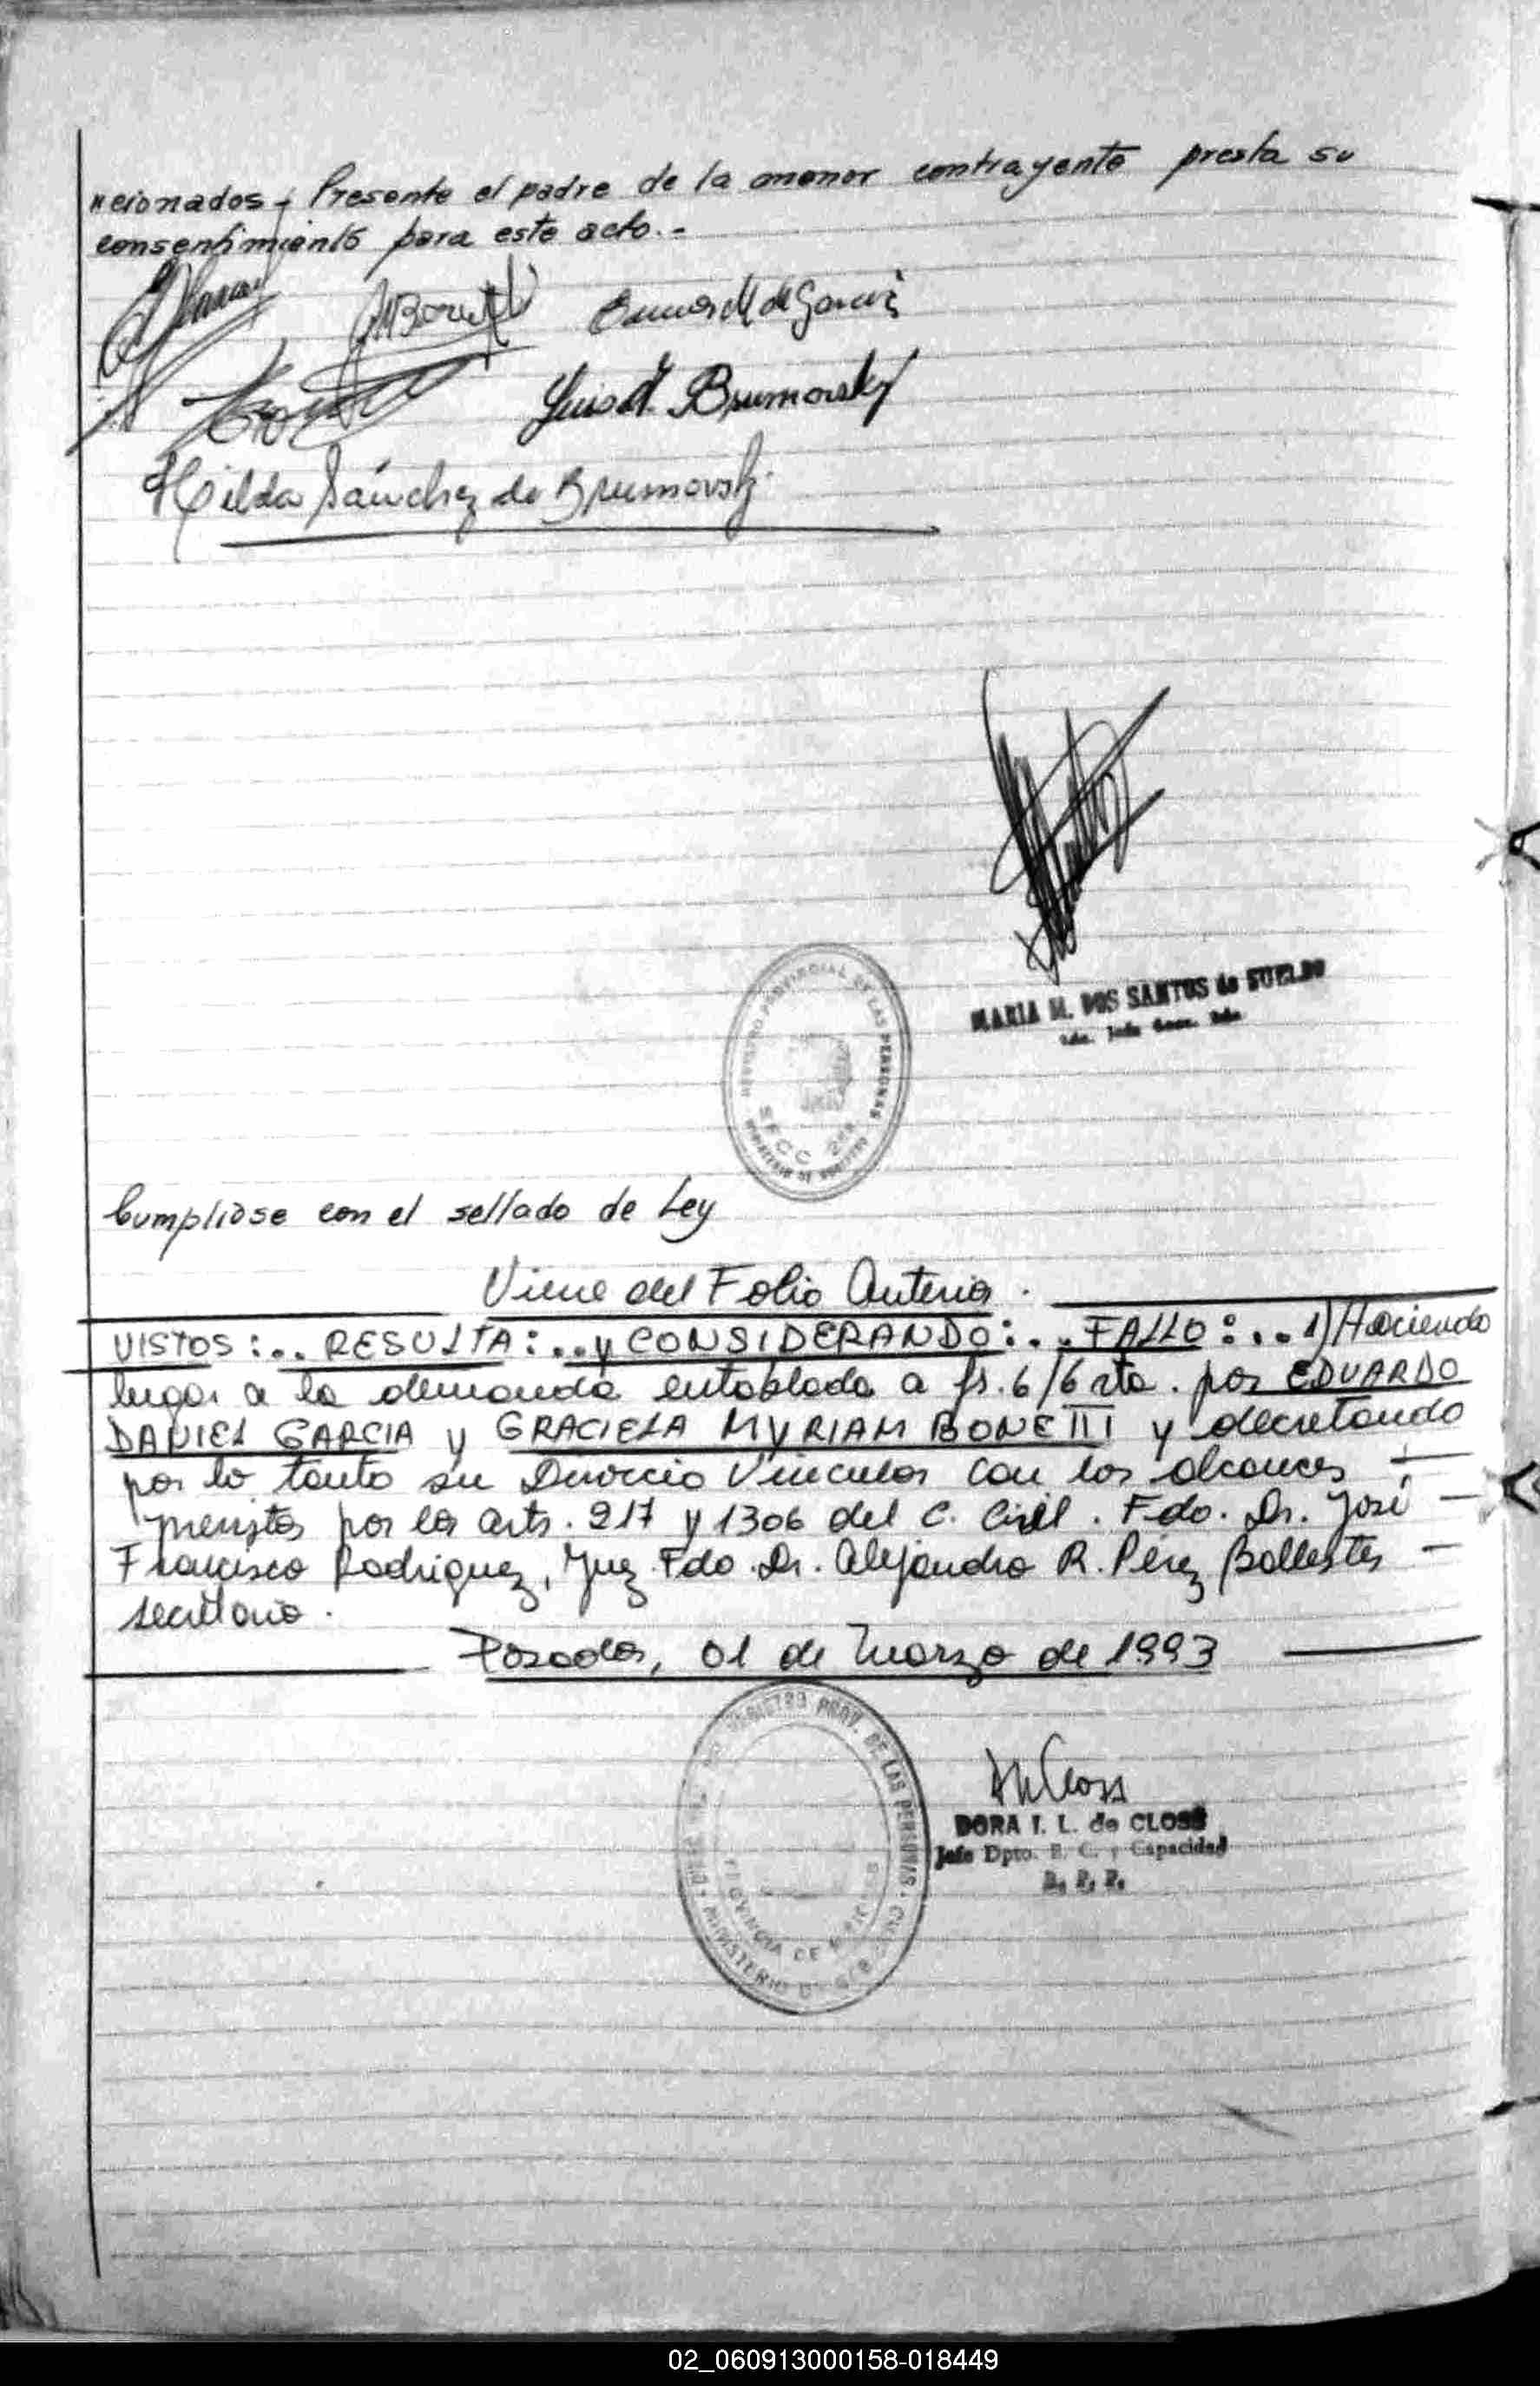 ncionados - Presente el padre de la menor contrayente presta su
consentimiento para este acto. -
GMBonetti
Emma M de Garcia
Luis A. Brumovsky
Hilda Sánchez de Brumovsky
MARIA M. DOS SANTOS de SUELDO
REGISTRO PROVINCIAL DE LAS PERSONAS
SECC 2da
MINISTERIO DE GOBIERNO
Cumpliose con el sellado de Ley
Viene del Folio Anterior.
VISTOS:.. RESULTA:.. y CONSIDERANDO:... FALLO:... 1) Haciendo
lugar a la demanda entablada a fs. 6/6 vta. por EDUARDO
DANIEL GARCIA y GRACIELA MYRIAM BONETTI y decretando
por lo tanto su Divorcio Vincular con los alcances
previstos por los arts. 217 y 1306 del C. Civil. Fdo. Dr. José
Francisco Rodriguez, Juez. Fdo. Dr. Alejandro R. Pérez Ballester
secretario.
Posadas, 01 de Marzo de 1993
REGISTRO PROV. DE LAS PERSONAS
PROVINCIA DE MISIONES
MINISTERIO DE GOBIERNO
DORA I. L. de CLOSS
Jefe Dpto. E. C. y Capacidad
R. P. P.
02_060913000158-018449